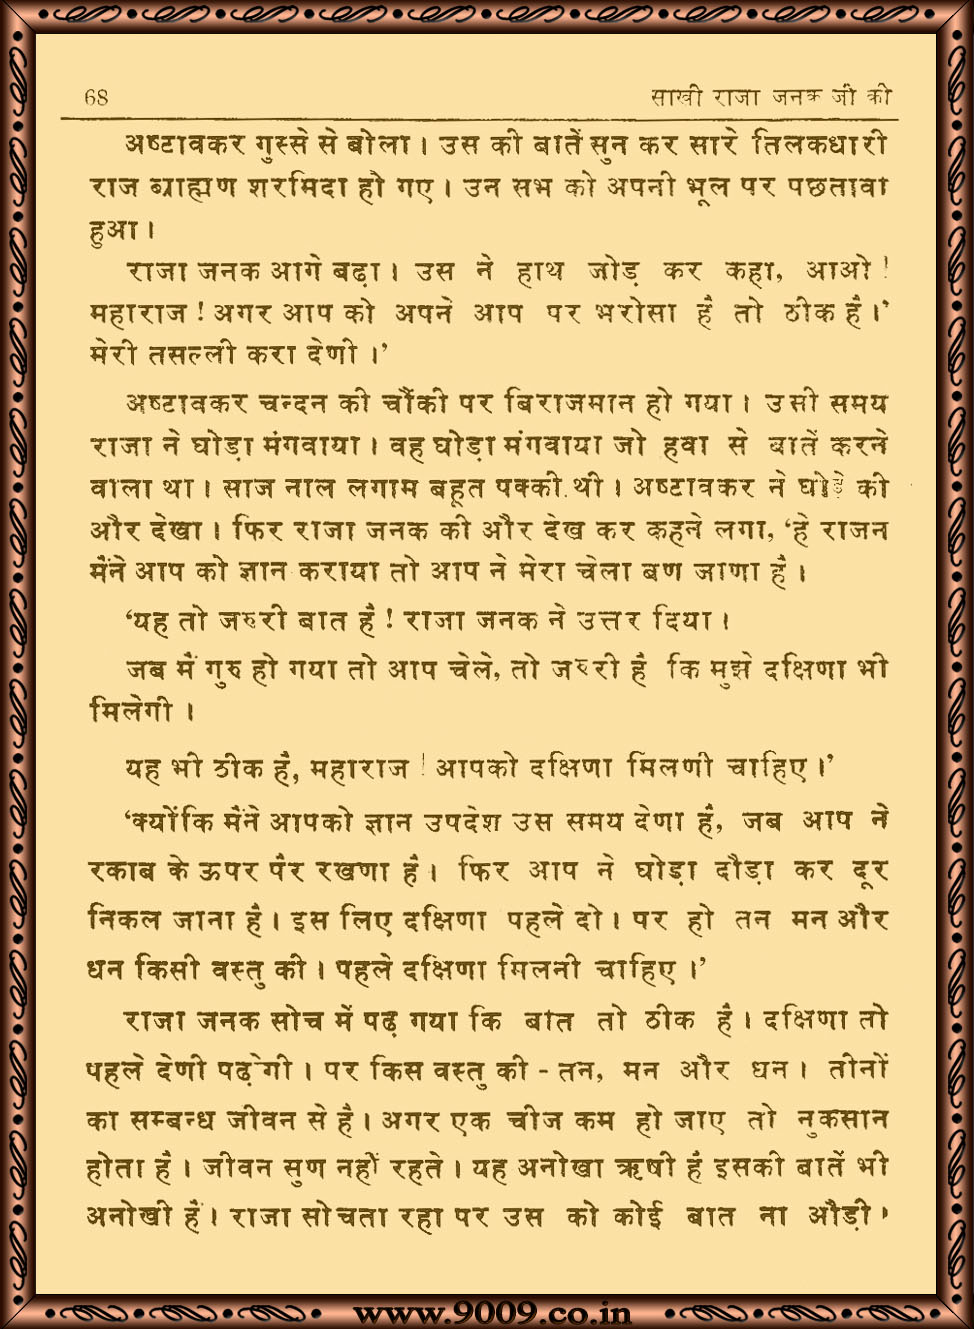 68 साखी राजा जनक जी की
अष्टावकर गुस्से से बोला। उस की बातें सुन कर सारे तिलकधारी
राज ब्राह्मण शरमिदा हो गए। उन सभ को अपनी भूल पर पछतावा
हुआ।
राजा जनक आगे बढ़ा। उस ने हाथ जोड़ कर कहा, आओ !
महाराज ! अगर आप को अपने आप पर भरोसा है तो ठीक है।’
मेरी तसल्ली करा देणी।’
अष्टावकर चन्दन की चौंकी पर बिराजमान हो गया। उसी समय
राजा ने घोड़ा मंगवाया। वह घोड़ा मंगवाया जो हवा से बातें करने
वाला था। साज नाल लगाम बहूत पक्की थी। अष्टावकर ने घोड़े की
और देखा। फिर राजा जनक की और देख कर कहने लगा, ‘हे राजन
मैंने आप को ज्ञान कराया तो आप ने मेरा चेला बण जाणा है।
‘यह तो जरुरी बात है ! राजा जनक ने उत्तर दिया।
जब मैं गुरु हो गया तो आप चेले, तो जरुरी है कि मुझे दक्षिणा भी
मिलेगी।
यह भी ठीक है, महाराज ! आपको दक्षिणा मिलणी चाहिए।’
‘क्योंकि मैंने आपको ज्ञान उपदेश उस समय देणा है, जब आप ने
रकाब के ऊपर पैर रखणा है। फिर आप ने घोड़ा दौड़ा कर दूर
निकल जाना है। इस लिए दक्षिणा पहले दो। पर हो तन मन और
धन किसी वस्तु की। पहले दक्षिणा मिलनी चाहिए।’
राजा जनक सोच में पढ़ गया कि बात तो ठीक है। दक्षिणा तो
पहले देणी पढ़ेगी। पर किस वस्तु की - तन, मन और धन। तीनों
का सम्बन्ध जीवन से है। अगर एक चीज कम हो जाए तो नुकसान
होता है। जीवन सुण नहीं रहते। यह अनोखा ऋषी है इसकी बातें भी
अनोखी हैं। राजा सोचता रहा पर उस को कोई बात ना औड़ी।
www.9009.co.in